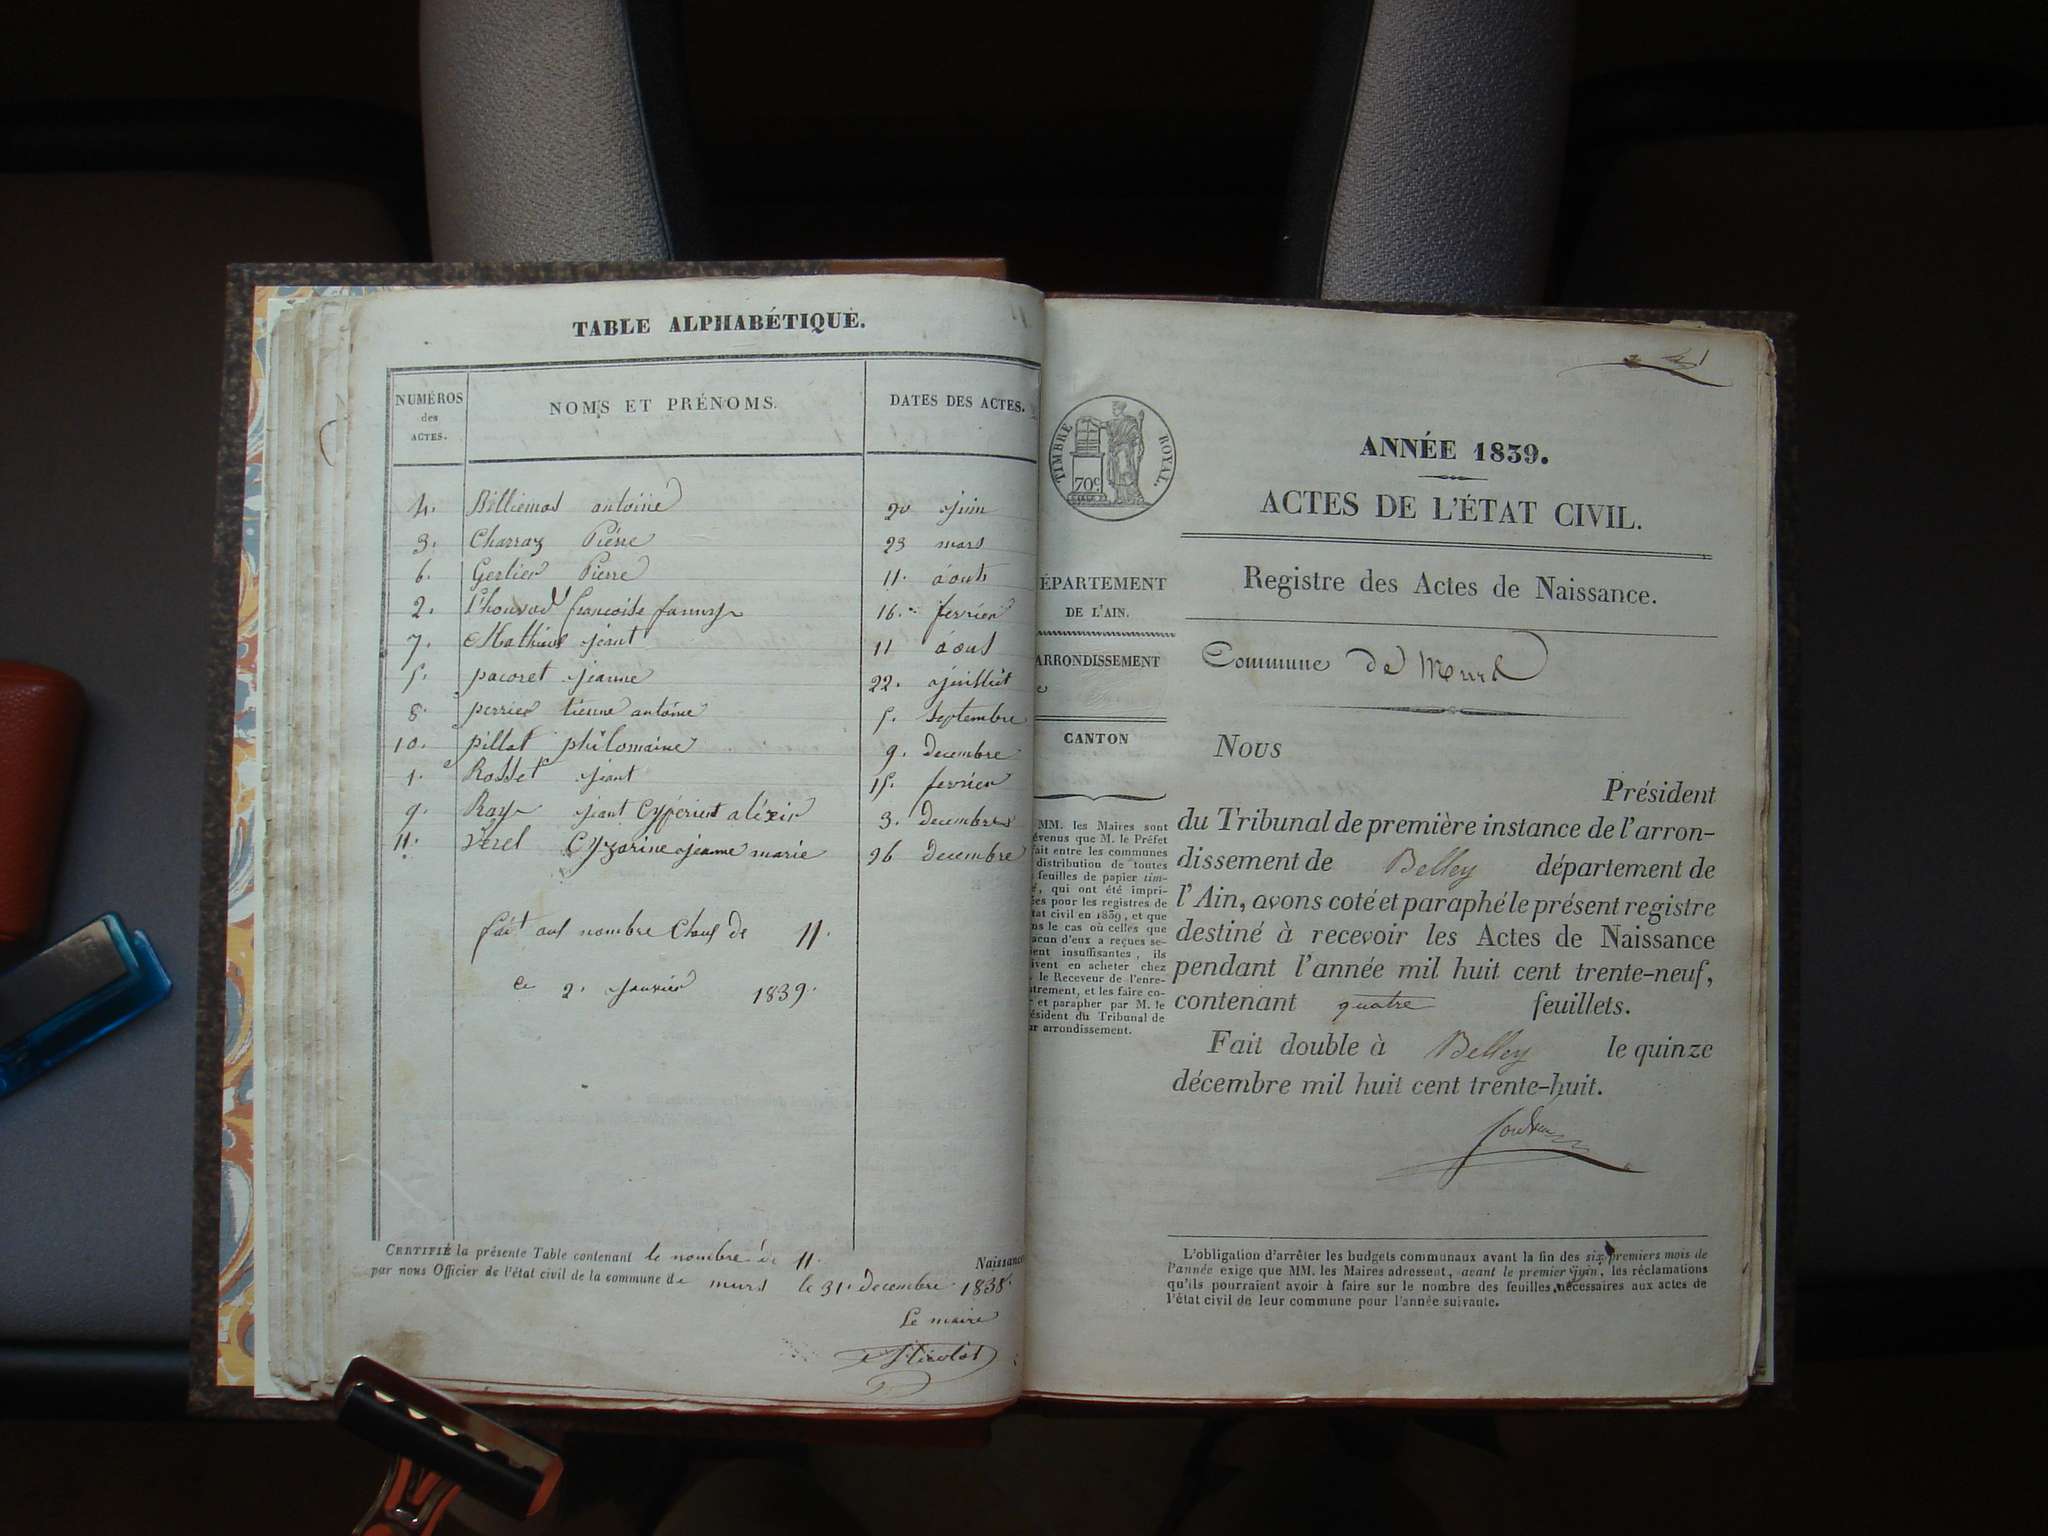 TABLE ALPHABÉTIQUE.
NUMÉROS des ACTES. NOMS ET PRÉNOMS. DATES DES ACTES.
4. Billiemas antoine 20 juin
3. Charraz Piérre 23 mars
6. Gerlier Pierre 11. áout
2. françoise fanny 16. fevrier
7. Mathieus jeant 11 áout
5. pacoret jeanne 22. juilliet
8. perrier tienne antoine 5. septembre
10. pillat philomaine 9. decembre
1. Rosset jeant 15. fevrier
9. Ray jeant aléxis 3. decembre
11. Vérel jeanne marie 26 decembre
fait aus nombre de 11.
ce 2. janvier 1839.
CERTIFIÉ la présente Table contenant le nombre de 11. Naissance
par nous Officier de l'état civil de la commune de murs le 31. decembre 1838.
Le maire
TIMBRE ROYAL.
70c
ANNÉE 1839.
ACTES DE L'ÉTAT CIVIL.
Registre des Actes de Naissance.
ÉPARTEMENT
DE L'AIN.
ARRONDISSEMENT
e
CANTON
MM. les Maires sont
évenus que M. le Préfet
fait entre les communes
distribution de toutes
feuilles de papier tim-
é, qui ont été impri-
ées pour les registres de
tat civil en 1839, et que
ns le cas où celles que
acun d'eux a reçues se-
ient insuffisantes, ils
ivent en acheter chez
le Receveur de l'enre-
trement, et les faire co-
r et parapher par M. le
ésident du Tribunal de
ur arrondissement.
Commune de Murs
Nous
Président
du Tribunal de première instance de l'arron-
dissement de Belley département de
l'Ain, avons coté et paraphé le présent registre
destiné à recevoir les Actes de Naissance
pendant l'année mil huit cent trente-neuf,
contenant quatre feuillets.
Fait double à Belley le quinze
décembre mil huit cent trente-huit.
L'obligation d'arrêter les budgets communaux avant la fin des six premiers mois de
l'année exige que MM. les Maires adressent, avant le premier juin, les réclamations
qu'ils pourraient avoir à faire sur le nombre des feuilles nécessaires aux actes de
l'état civil de leur commune pour l'année suivante.